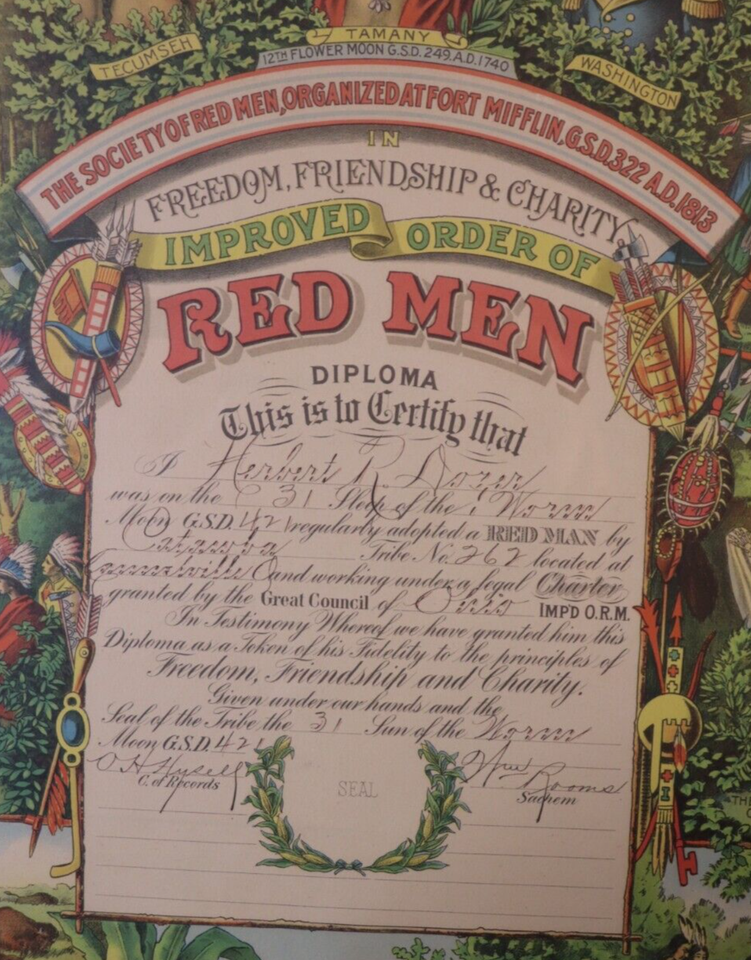 TECUMSEH
TAMANY
12TH FLOWER MOON G.S.D. 249. A.D. 1740
WASHINGTON
THE SOCIETY OF RED MEN, ORGANIZED AT FORT MIFFLIN, G.S.D. 322 A.D. 1813
IN
FREEDOM, FRIENDSHIP & CHARITY
IMPROVED ORDER OF
RED MEN
DIPLOMA
This is to Certify that
Herbert R.
was on the 31 Sleep of the Worm
Moon G.S.D. 421 regularly adopted a RED MAN by
Catawba Tribe No. 262 located at
O and working under a legal Charter
granted by the Great Council of Ohio IMP'D O.R.M.
In Testimony Whereof we have granted him this
Diploma as a Token of his Fidelity to the principles of
Freedom, Friendship and Charity.
Given under our hands and the
Seal of the Tribe the 31 Sun of the Worm
Moon G.S.D. 421
O H Hysell
C. of Records
SEAL
Wm Rooms
Sachem